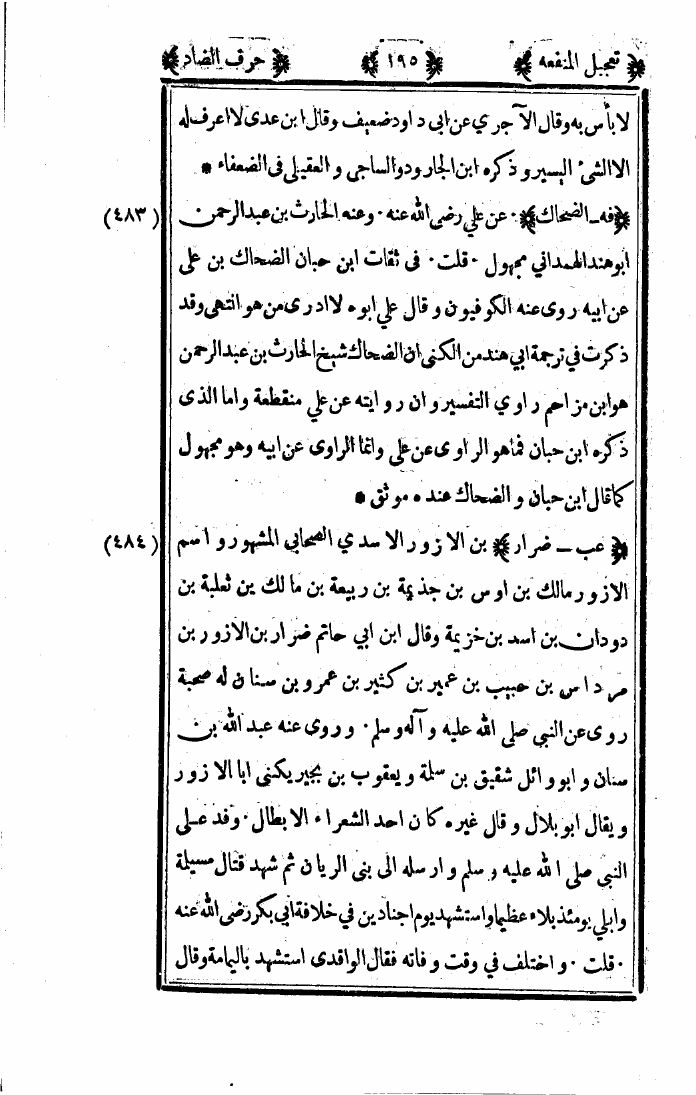 ﴿ تعجيل المنفعه ﴾ ﴿ ١٩٥ ﴾ ﴿ حرف الضاد ﴾
لا بأس به وقال الآجري عن ابى داود ضعيف وقال ابن عدى لا اعرف له
الا الشئ اليسير و ذكره ابن الجارود والساجى و العقيلى فى الضعفاء *
﴿ فه ــ الضحاك ﴾ · عن علي رضى الله عنه · وعنه الحارث بن عبد الرحمن (٤٨٣)
ابو هند الهمداني مجهول · قلت · فى ثقات ابن حبان الضحاك بن على
عن ابيه روى عنه الكوفيون و قال علي ابوه لا ادرى من هو انتهى وقد
ذكرت في ترجمة ابي هند من الكنى ان الضحاك شيخ الحارث بن عبد الرحمن
هو ابن مزاحم راوي التفسير وان روايته عن علي منقطعة واما الذى
ذكره ابن حبان فما هو الراوى عن على وانما الراوى عن ابيه وهو مجهول
كما قال ابن حبان و الضحاك عنده موثق *
﴿ عب ــ ضرار ﴾ بن الازور الاسدي الصحابي المشهور و اسم (٤٨٤)
الازور مالك بن اوس بن جذيمة بن ربيعة بن مالك بن ثعلبة بن
دودان بن اسد بن خزيمة وقال ابن ابي حاتم ضرار بن الازور بن
مرداس بن حبيب بن عمير بن كثير بن عمرو بن سنان له صحبة
روى عن النبي صلى الله عليه و آله وسلم · و روى عنه عبد الله بن
سنان و ابو وائل شقيق بن سلمة و يعقوب بن بجير يكنى ابا الازور
و يقال ابو بلال و قال غيره كان احد الشعراء الابطال · وفد على
النبي صلى الله عليه وسلم و ارسله الى بنى الريان ثم شهد قتال مسيلمة
وابلى يومئذ بلاء عظيما واستشهد يوم اجنادين في خلافة ابي بكر رضى الله عنه
· قلت · و اختلف في وقت وفاته فقال الواقدى استشهد باليمامة وقال